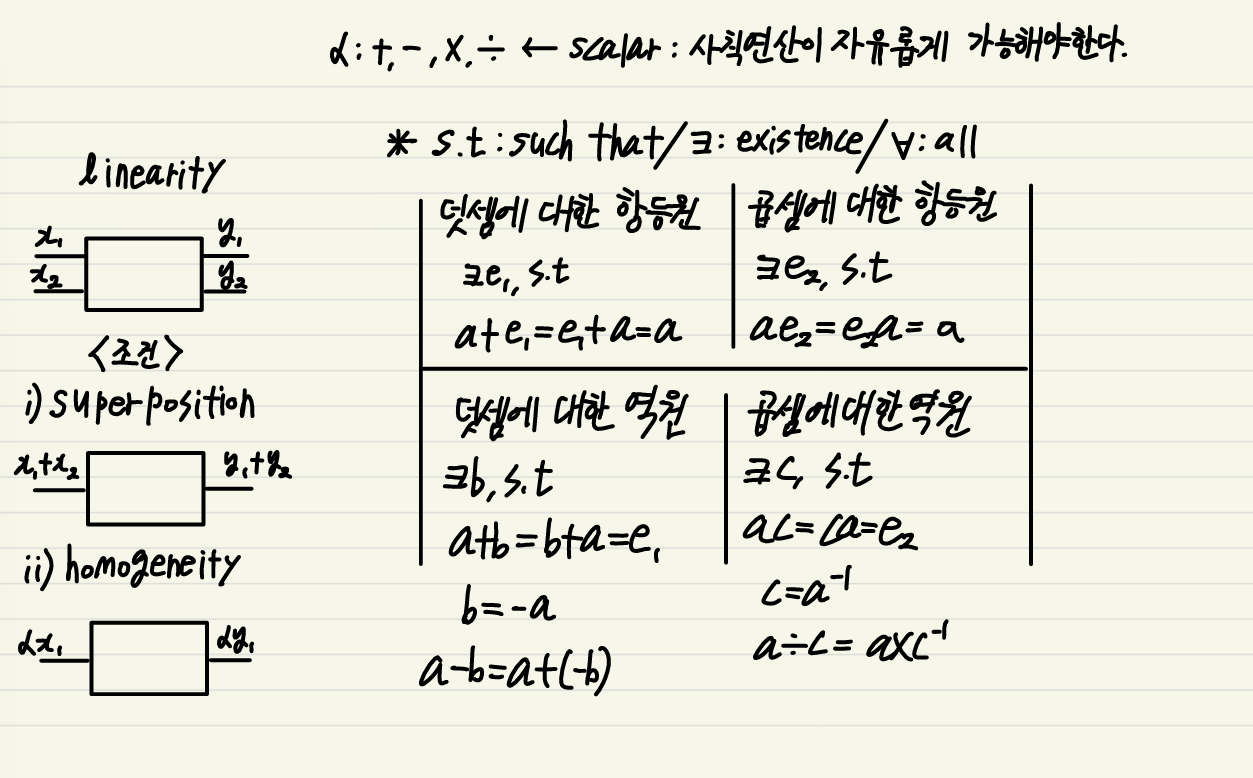 α : +, -, ×, ÷ ← scalar : 사칙연산이 자유롭게 가능해야한다.
* s.t : such that / ∃ : existence / ∀ : all
linearity
x₁ y₁
x₂ y₂
<조건>
i) superposition
x₁+x₂ y₁+y₂
ii) homogeneity
αx₁ αy₁
덧셈에 대한 항등원
∃e₁, s.t
a+e₁=e₁+a=a
곱셈에 대한 항등원
∃e₂, s.t
ae₂=e₂a=a
덧셈에 대한 역원
∃b, s.t
a+b=b+a=e₁
b=-a
a-b=a+(-b)
곱셈에 대한 역원
∃c, s.t
ac=ca=e₂
c=a⁻¹
a÷c=a×c⁻¹